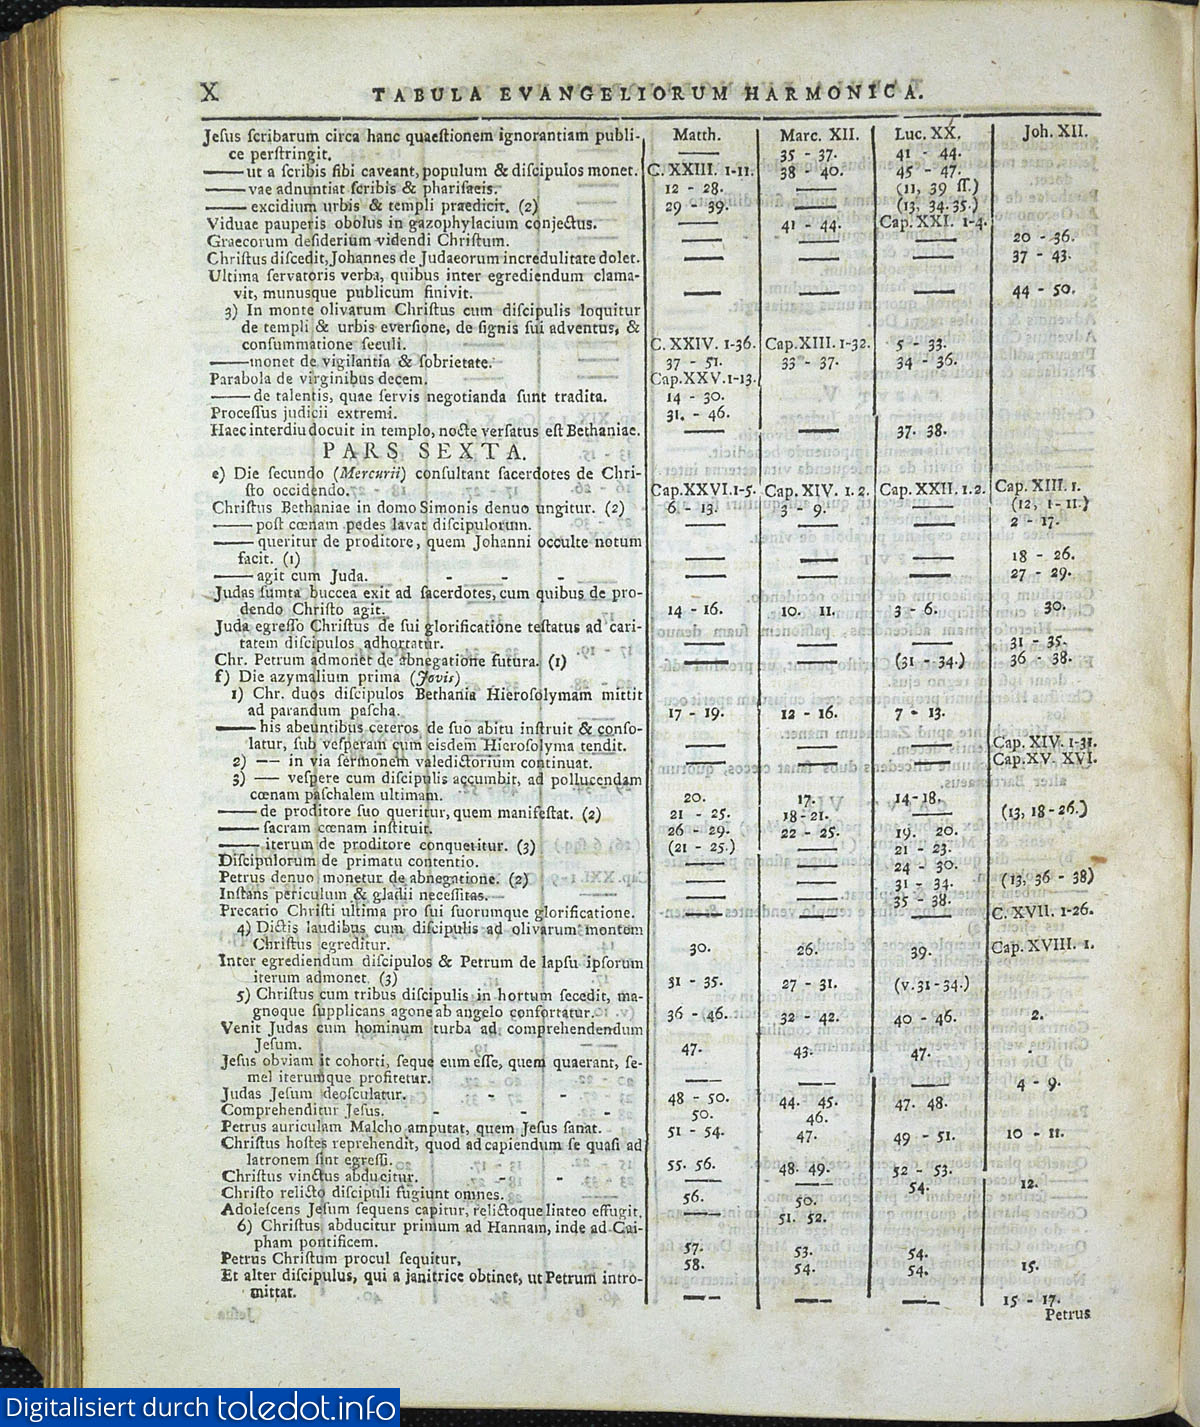 X TABULA EVANGELIORUM HARMONICA.
Matth. Marc. XII. Luc. XX. Joh. XII.
Jeſus ſcribarum circa hanc quaeſtionem ignorantiam publi-
ce perſtringit. —— 35 - 37. 41 - 44.
—— ut a ſcribis ſibi caveant, populum & diſcipulos monet. C. XXIII. 1-11. 38 - 40. 45 - 47.
—— vae adnuntiat ſcribis & phariſaeis. 12 - 28. —— (11, 39 ſſ.)
—— excidium urbis & templi praedicit. (2) 29 - 39. —— (13. 34. 35.)
Viduae pauperis obolus in gazophylacium conjectus. —— 41 - 44. Cap. XXI. 1-4.
Graecorum deſiderium videndi Chriſtum. —— —— —— 20 - 36.
Chriſtus diſcedit, Johannes de Judaeorum incredulitate dolet. —— —— —— 37 - 43.
Ultima ſervatoris verba, quibus inter egrediendum clama-
vit, munusque publicum finivit. —— —— —— 44 - 50.
3) In monte olivarum Chriſtus cum diſcipulis loquitur
de templi & urbis everſione, de ſignis ſui adventus, &
conſummatione ſeculi. C. XXIV. 1-36. Cap. XIII. 1-32. 5 - 33.
—— monet de vigilantia & ſobrietate. 37 - 51. 33 - 37. 34 - 36.
Parabola de virginibus decem. Cap. XXV. 1-13.
—— de talentis, quae ſervis negotianda ſunt tradita. 14 - 30.
Proceſſus judicii extremi. 31. - 46.
Haec interdiu docuit in templo, nocte verſatus eſt Bethaniae. —— —— 37. 38.
PARS SEXTA.
e) Die ſecundo (Mercurii) conſultant ſacerdotes de Chri-
ſto occidendo. Cap. XXVI. 1-5. Cap. XIV. 1. 2. Cap. XXII. 1. 2. Cap. XIII. 1.
Chriſtus Bethaniae in domo Simonis denuo ungitur. (2) 6 - 13. 3 - 9. —— (12, 1-11.)
—— poſt cœnam pedes lavat diſcipulorum. —— —— —— 2 - 17.
—— queritur de proditore, quem Johanni occulte notum
facit. (1) —— —— —— 18 - 26.
—— agit cum Juda. - - - —— —— —— 27 - 29.
Judas ſumta buccea exit ad ſacerdotes, cum quibus de pro-
dendo Chriſto agit. 14 - 16. 10. 11. 3 - 6. 30.
Juda egreſſo Chriſtus de ſui glorificatione teſtatus ad cari-
tatem diſcipulos adhortatur. —— —— —— 31 - 35.
Chr. Petrum admonet de abnegatione futura. (1) —— —— (31 - 34.) 36 - 38.
f) Die azymalium prima (Jovis)
1) Chr. duos diſcipulos Bethania Hieroſolymam mittit
ad parandum paſcha. 17 - 19. 12 - 16. 7 - 13.
—— his abeuntibus ceteros de ſuo abitu inſtruit & conſo-
latur, ſub veſperam cum eisdem Hieroſolyma tendit. —— —— —— Cap. XIV. 1-31.
2) —— in via ſermonem valedictorium continuat. —— —— —— Cap. XV. XVI.
3) —— veſpere cum diſcipulis accumbit, ad pollucendam
cœnam paſchalem ultimam. 20. 17. 14-18.
—— de proditore ſuo queritur, quem manifeſtat. (2) 21 - 25. 18-21. —— (13, 18-26.)
—— ſacram cœnam inſtituit. 26 - 29. 22 - 25. 19. 20.
—— iterum de proditore conqueritur. (3) (21 - 25.) —— 21 - 23.
Diſcipulorum de primatu contentio. —— —— 24 - 30.
Petrus denuo monetur de abnegatione. (2) —— —— 31 - 34. (13, 36 - 38)
Inſtans periculum & gladii neceſſitas. —— —— 35 - 38.
Precatio Chriſti ultima pro ſui ſuorumque glorificatione. —— —— —— C. XVII. 1-26.
4) Dictis laudibus cum diſcipulis ad olivarum montem
Chriſtus egreditur. 30. 26. 39. Cap. XVIII. 1.
Inter egrediendum diſcipulos & Petrum de lapſu ipſorum
iterum admonet. (3) 31 - 35. 27 - 31. (v. 31-34.)
5) Chriſtus cum tribus diſcipulis in hortum ſecedit, ma-
gnoque ſupplicans agone ab angelo confortatur. 36 - 46. 32 - 42. 40 - 46. 2.
Venit Judas cum hominum turba ad comprehendendum
Jeſum. 47. 43. 47.
Jeſus obviam it cohorti, ſeque eum eſſe, quem quaerant, ſe-
mel iterumque profitetur. —— —— —— 4 - 9.
Judas Jeſum deoſculatur. - - 48 - 50. 44. 45. 47. 48.
Comprehenditur Jeſus. - - - 50. 46.
Petrus auriculam Malcho amputat, quem Jeſus ſanat. 51 - 54. 47. 49 - 51. 10 - 11.
Chriſtus hoſtes reprehendit, quod ad capiendum ſe quaſi ad
latronem ſint egreſſi. 55. 56. 48. 49. 52 - 53.
Chriſtus vinctus abducitur. - - —— —— 54. 12.
Chriſto relicto diſcipuli fugiunt omnes. 56. 50.
Adoleſcens Jeſum ſequens capitur, relictoque linteo effugit. —— 51. 52.
6) Chriſtus abducitur primum ad Hannam, inde ad Cai-
pham pontificem. 57. 53. 54.
Petrus Chriſtum procul ſequitur, 58. 54. 54. 15.
Et alter diſcipulus, qui a janitrice obtinet, ut Petrum intro-
mittat. —— —— —— 15 - 17.
Petrus
Digitalisiert durch toledot.info